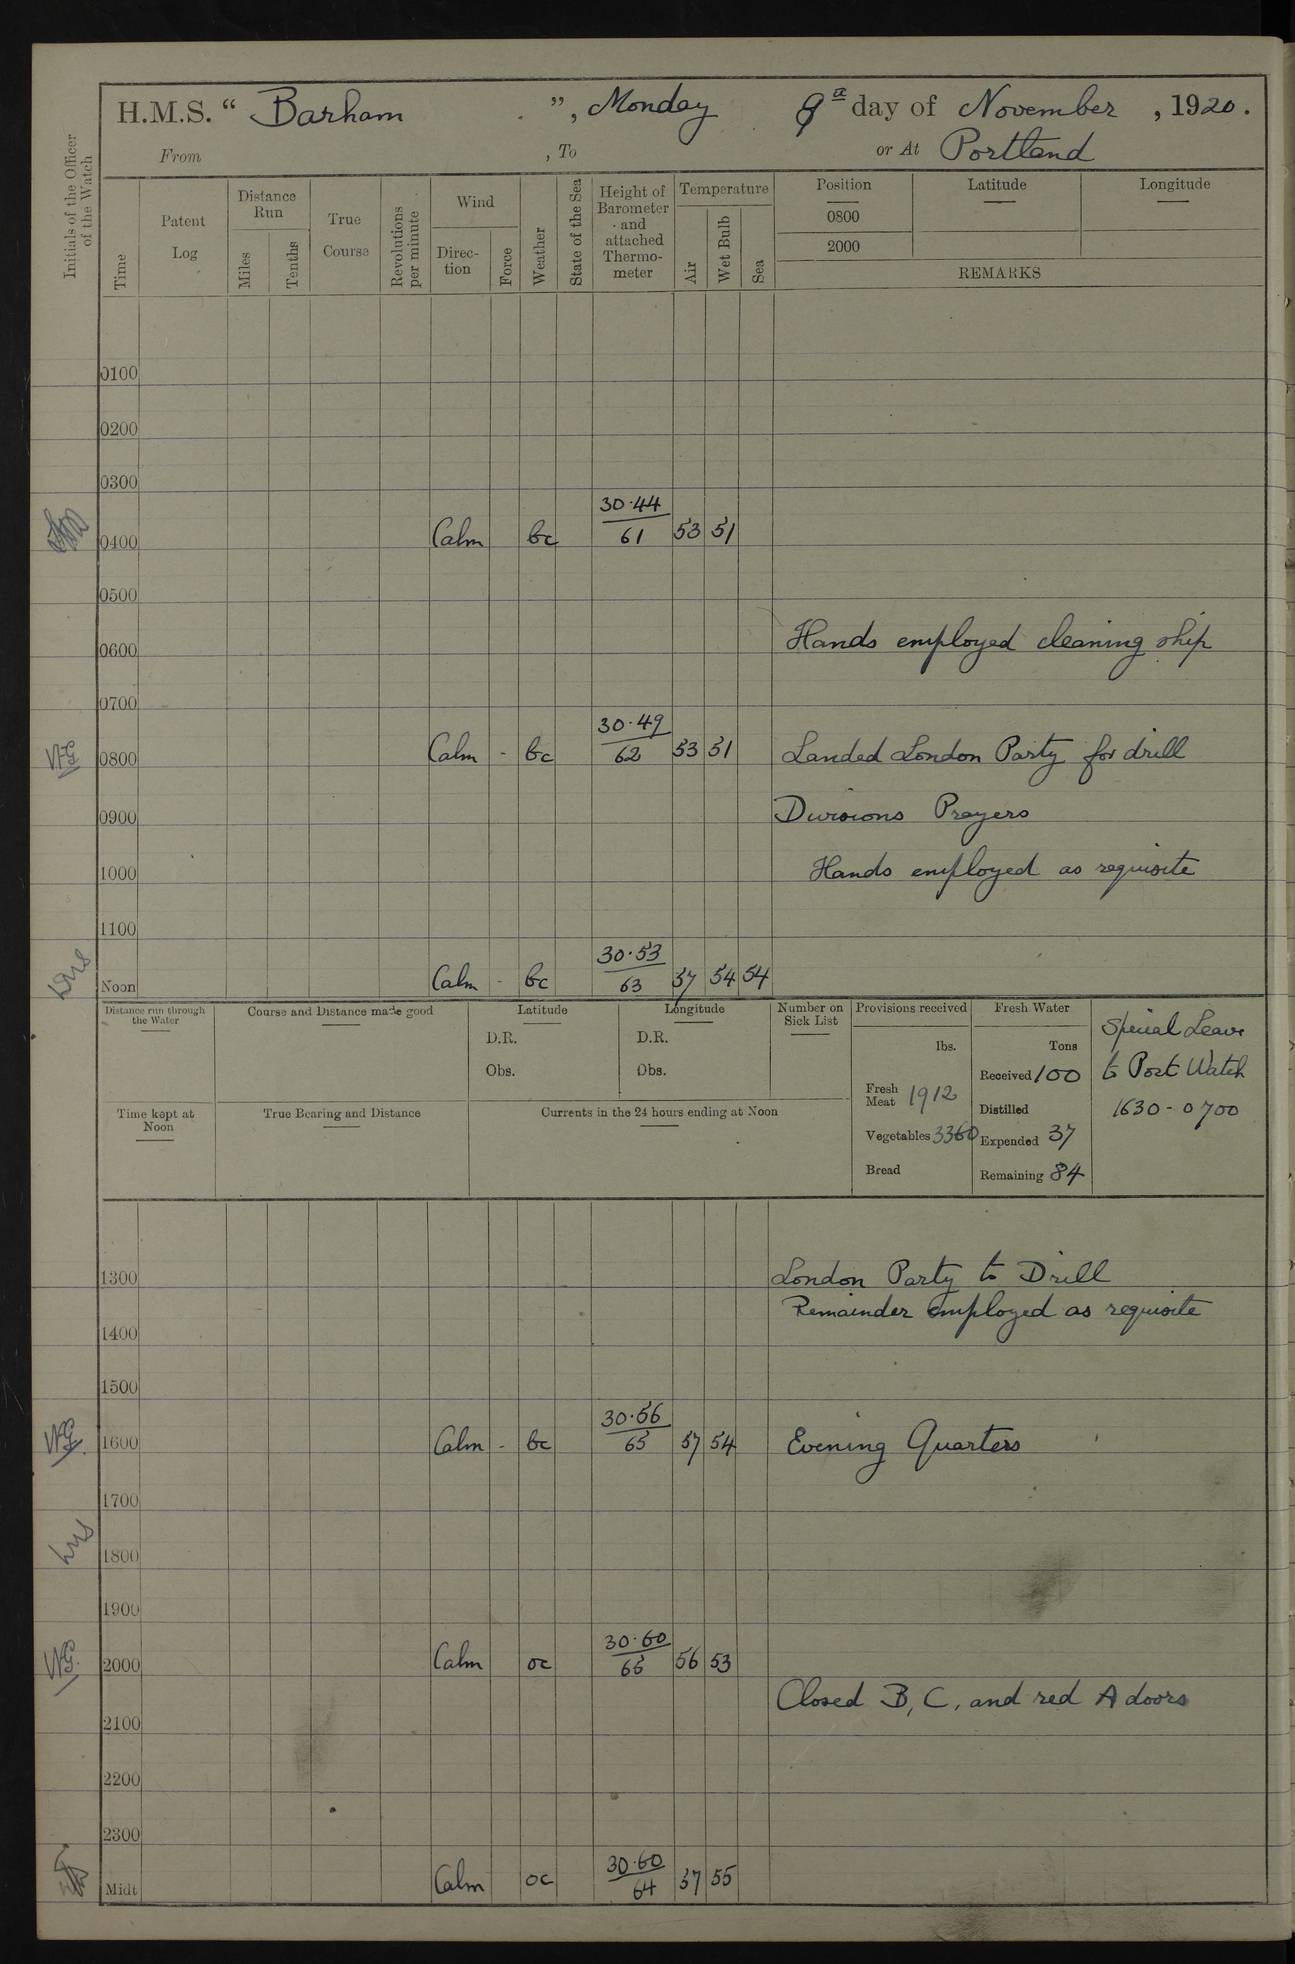 H.M.S. “ Barham ”, Monday 9th day of November, 1920.
From , To or At Portland
Initials of the Officer of the Watch
Time
Patent Log
Distance Run
Miles
Tenths
True Course
Revolutions per minute
Wind
Direction
Force
Weather
State of the Sea
Height of Barometer and attached Thermometer
Temperature
Air
Wet Bulb
Sea
Position Latitude Longitude
0800
2000
REMARKS
0100
0200
0300
0400 Calm bc 30.44 61 53 51
0500
0600 Hands employed cleaning ship
0700
0800 Calm - bc 30.49 62 53 51 Landed London Party for drill
0900 Divisions Prayers
1000 Hands employed as requisite
1100
Noon Calm - bc 30.53 63 57 54 54
Distance run through the Water
Course and Distance made good
Latitude
D.R.
Obs.
Longitude
D.R.
Obs.
Number on Sick List
Provisions received
lbs.
Fresh Meat 1912
Vegetables 3360
Bread
Fresh Water
Tons
Received 100
Distilled
Expended 37
Remaining 84
Special Leave
to Port Watch
1630 - 0700
Time kept at Noon
True Bearing and Distance
Currents in the 24 hours ending at Noon
1300 London Party to Drill
Remainder employed as requisite
1400
1500
1600 Calm - bc 30.56 65 57 54 Evening Quarters
1700
1800
1900
2000 Calm oc 30.60 65 56 53
Closed B, C, and red A doors
2100
2200
2300
Midt Calm oc 30.60 64 57 55